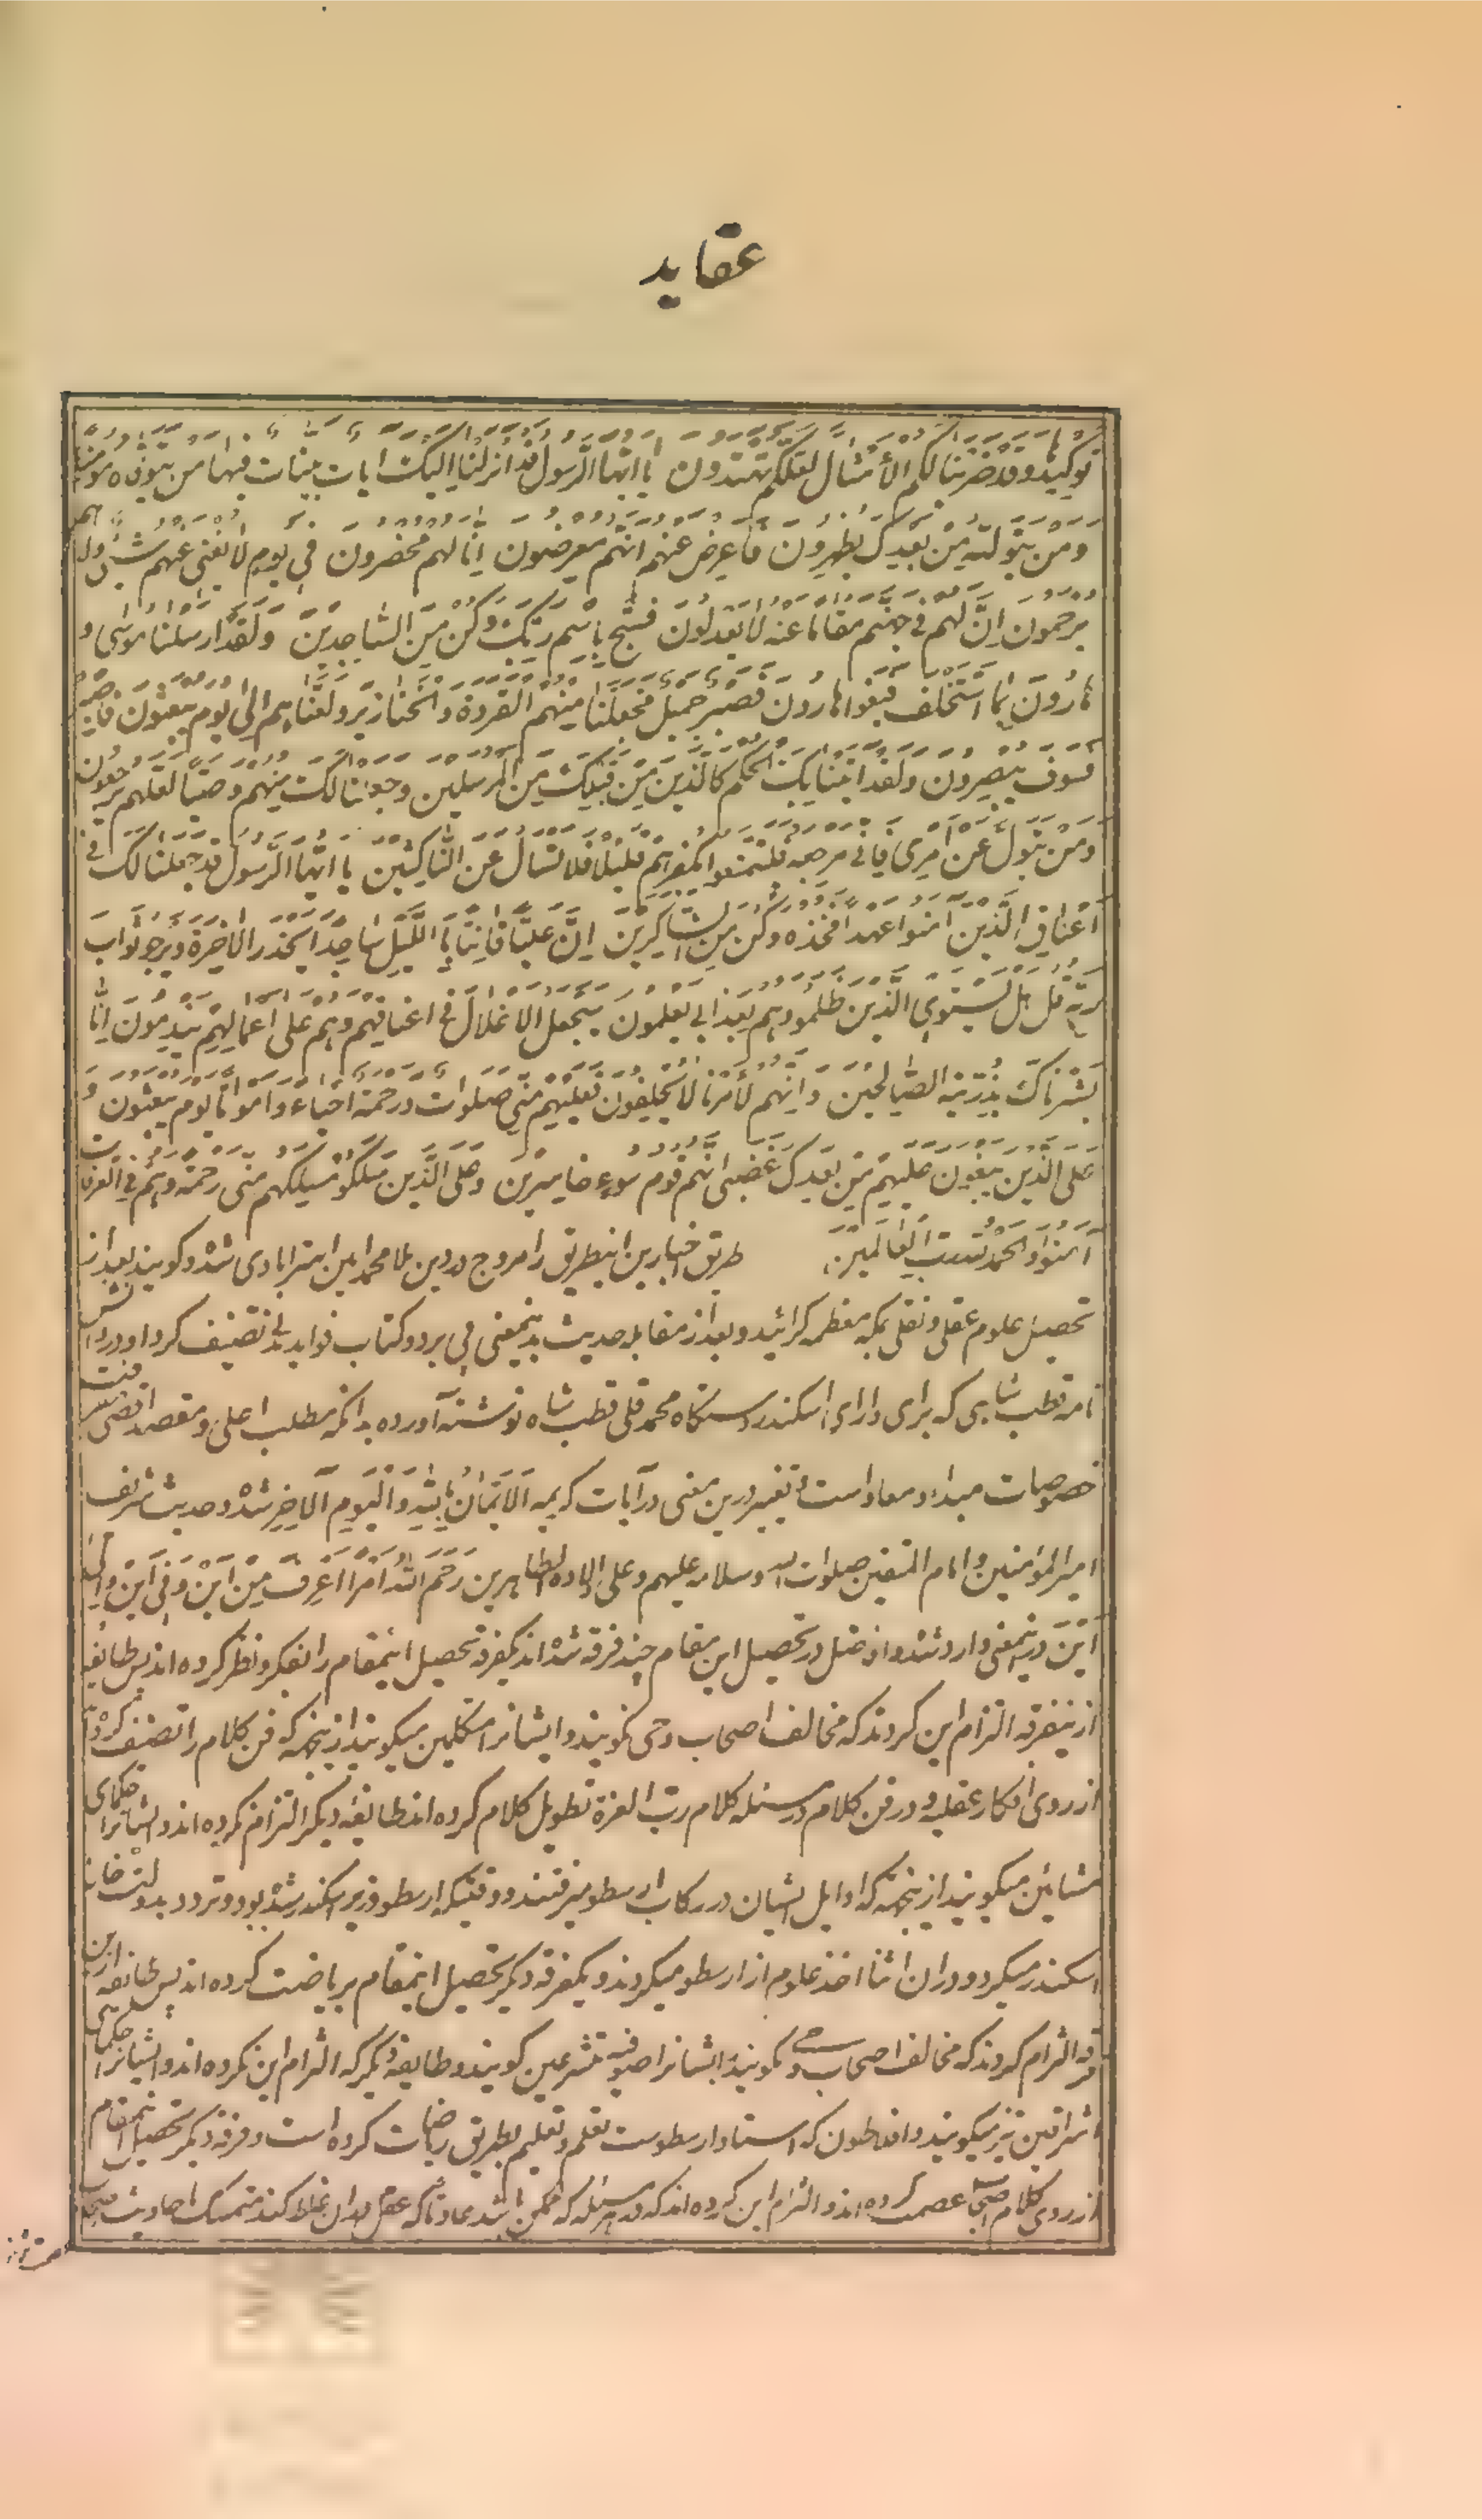 عقاید
توکیدها وقد ضربنا لکم الأمثال لعلکم تهتدون یا ایها الرسول قد انزلنا الیک ایات بینات فیها من یتوفه مؤمنا
ومن یتولیه من بعدک یظهرون فاعرض عنهم انهم معرضون انا لهم محضرون فی یوم لا یغنی عنهم شیئ ولا هم
یرحمون ان لهم فی جهنم مقاما عنه لا یعدلون فسبح باسم ربک وکن من الساجدین ولقد ارسلنا موسی و
هارون بما استخلف فبغوا هارون فصبر جمیل فجعلنا منهم القردة والخنازیر ولعناهم الی یوم یبعثون فاصبر
فسوف یبصرون ولقد اتینا بک الحکم کالذین من قبلک من المرسلین وجعلنا لک منهم وصیا لعلهم یرجعون
ومن یتول عن امری فانی مرجعه فلیتمتعوا بکفرهم قلیلا فلا تسال عن الناکثین یا ایها الرسول قد جعلنا لک فی
اعناق الذین آمنوا عهدا فخذه وکن من الشاکرین ان علیا قانتا باللیل ساجدا یحذر الاخرة ویرجو ثواب
ربه قل هل یستوی الذین ظلموا وهم بعذابی یعلمون سیجعل الاغلال فی اعناقهم وهم علی اعمالهم یندمون انا
بشرناک بذریته الصالحین وانهم لأمرنا لا یخلفون فعلیهم منی صلوات ورحمة احیاء وامواتا یوم یبعثون و
علی الذین یبغون علیهم من بعدک غضبی انهم قوم سوء خاسرین وعلی الذین سلکوا مسلکهم منی رحمة وهم فی الغرفات
آمنون والحمد لله رب العالمین طریق اخبارین اینطریق را مروج درین ملا محمد امین استرابادی شد و کویند بعد از
تحصیل علوم عقلی و نقلی بمکه معظمه کرائید و بعد از مقابله حدیث بدینمعنی پی برد و کتاب فواید مدنی تصنیف کرد و در دانش
نامه قطب شاهی که برای دارای اسکندر دستکاه محمد قلی قطب شاه نوشته آورده بدانکه مطلب اعلی و مقصد اقصی معرفت
خصوصیات مبداء و معاد است و تعبیر درین معنی در آیات کریمه الایمان بالله والیوم الآخر شده و حدیث شریف
امیر المؤمنین و امام المتقین صلوات الله وسلامه علیهم وعلی اولاده الطاهرین رحم الله امرأ اعرف من این وفی این والی
این درینمعنی وارد شده و اند عقل در تحصیل این مقام چند فرقه شده اند یکفرقه تحصیل اینمقام را بفکر و نظر کرده اند پس طایفه
ازینفرقه التزام این کردند که مخالف اصحاب وحی نکویند و ایشانرا متکلمین میکویند ازینجهة که فن کلام را تصنیف کردند
از روی افکار عقلیه و در فن کلام در مسئله کلام رب العزة تطویل کلام کرده اند طایفه دیکر التزام نکرده اند و ایشانرا حکمای
مشائین میکویند ازینجهة که اوایل ایشان در رکاب ارسطو میرفتند و وقتیکه ارسطو وزیر اسکندر شده بود و تردد بدولت خانه
اسکندر میکرد و دران اثنا اخذ علوم از ارسطو میکردند و یکفرقه دیکر تحصیل اینمقام بریاضت کرده اند پس طایفه ازین
فرقه التزام کردند که مخالف اصحاب وحی نکویند ایشانرا صوفیه متشرعین کویند و طایفه دیکر که التزام این نکرده اند و ایشانرا حکمای
اشراقین نیز میکویند و افلاطون که استاد ارسطوست تعلم و تعلیم بطریق ریاضات کرده است و فرقه دیکر تحصیل اینمقام
از روی کلام اصحاب عصمت کرده اند و التزام این کرده اند که در هر مسئله که ممکن باشد عادتا که عقل دران غلط کند متمسک احادیث اصحاب